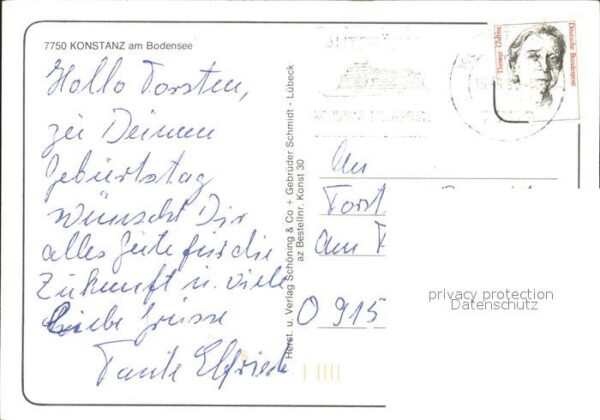 7750 KONSTANZ am Bodensee
Hallo Torsten,
zu Deinem
Geburtstag
wünscht Dir
alles Gute für die
Zukunft u. viele
liebe Grüsse
Tante Elfriede
Herst. u. Verlag Schöning & Co + Gebrüder Schmidt - Lübeck
az Bestellnr. Konst 30
Deutsche Bundespost
An
Torst
am
O 915
privacy protection
Datenschutz